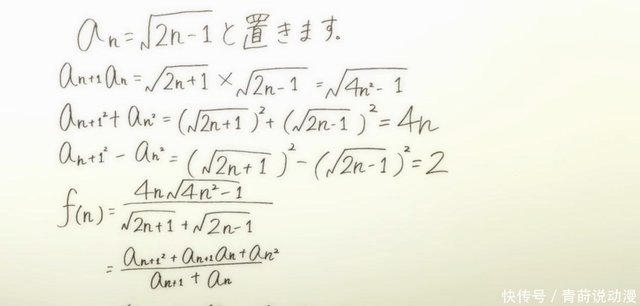 an=√2n-1と置きます。
an+1an=√2n+1×√2n-1=√4n²-1
an+1²+an²=(√2n+1)²+(√2n-1)²=4n
an+1²-an²=(√2n+1)²-(√2n-1)²=2
f(n)=4n√4n²-1/√2n+1+√2n-1
=an+1²+an+1an+an²/an+1+an
快传号/青荷说动漫